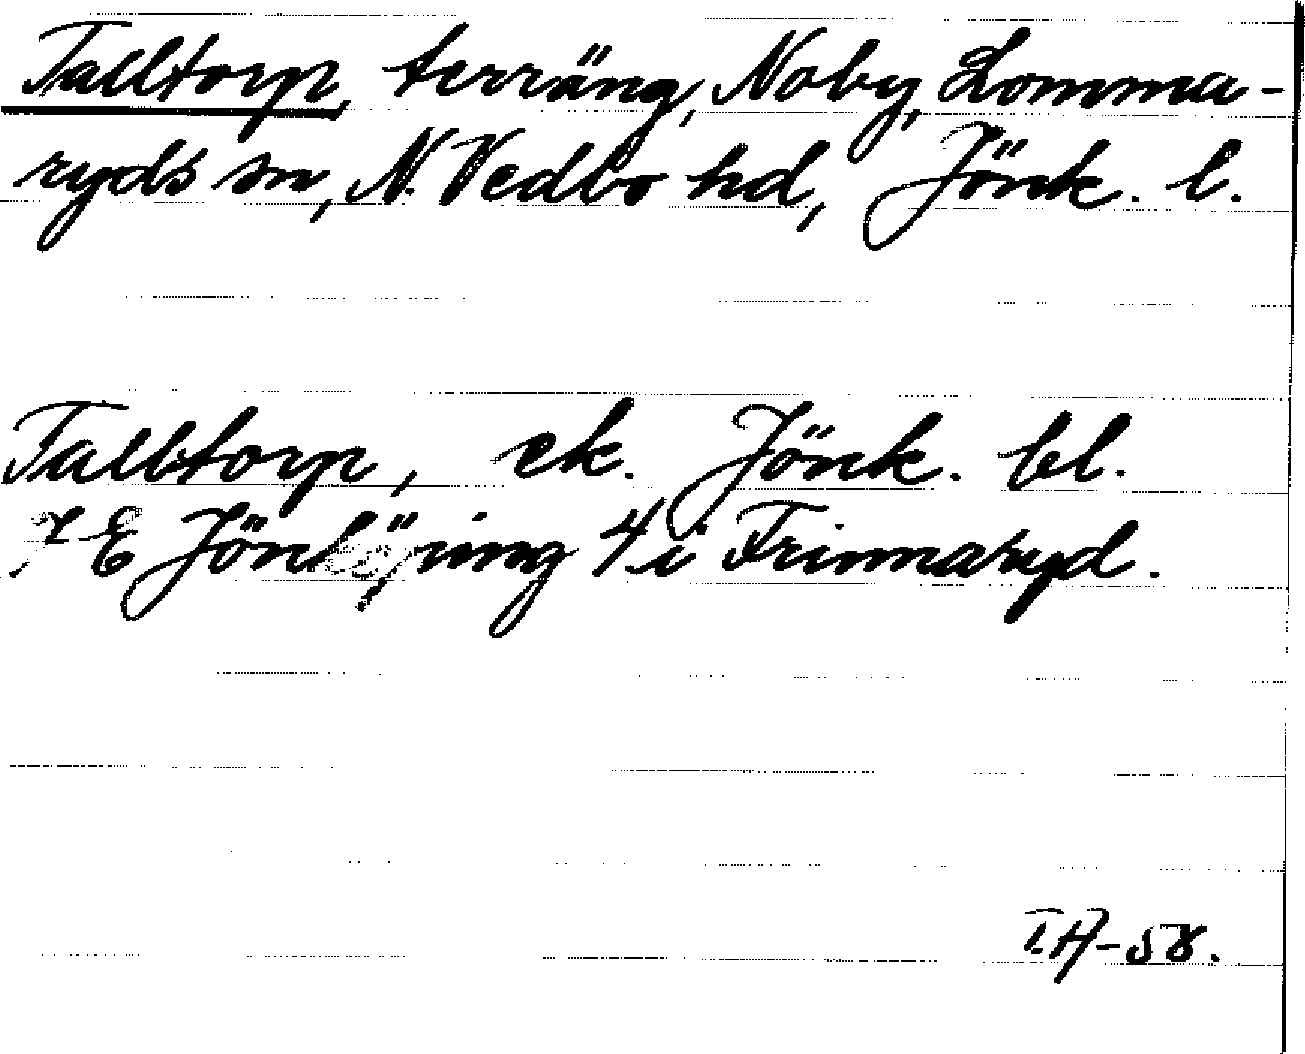 Talltorp, terräng, Noby, Lomma-
ryds sn, N. Vedbo hd, Jönk. l.
Talltorp, ek. Jönk. bl.
7 E Jönköping 4 i Frinnaryd.
T.A-58.